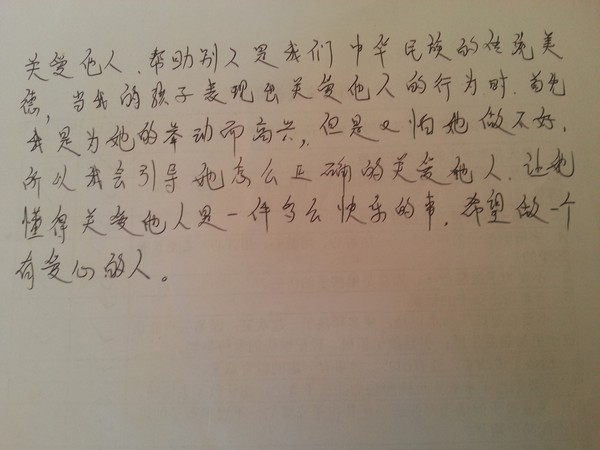 关爱他人、帮助别人是我们中华民族的传统美
德，当我的孩子表现出关爱他人的行为时，首先
我是为她的举动而高兴，但是又怕她做不好，
所以我会引导她怎么正确的关爱他人，让她
懂得关爱他人是一件多么快乐的事，希望做一个
有爱心的人。